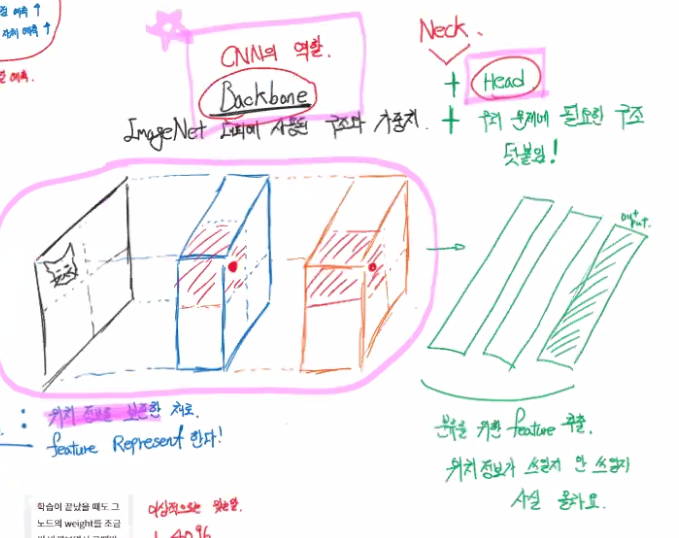 예측 ↑
자체 예측 ↑
예측.
CNN의 역할.
Backbone
ImageNet 대회에 사용된 구조와 가중치.
Neck.
+ Head
+ 우리 문제에 필요한 구조
덧붙임!
output.
: 위치 정보를 보존한 채로.
feature Represent 한다!
분류를 위한 feature 추출.
위치정보가 쓰일지 안 쓰일지
사실 몰라요.
학습이 끝났을 때도 그
노드의 weight를 조금
이상적으로는 맞는말.
4096